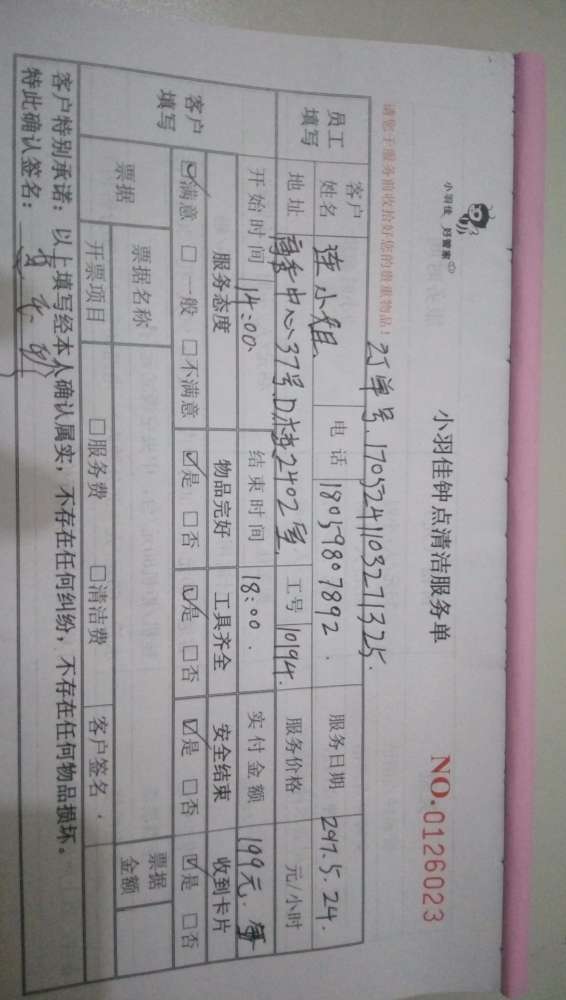 小羽佳 好管家
小羽佳钟点清洁服务单
NO.0126023
请您于服务前收拾好您的贵重物品！
订单号.170524110327 1325.
员工填写 客户姓名 连小姐 电话 18059807892. 服务日期 2017.5.24.
地址 商务中心37号D栋2402室. 工号 10194. 服务价格 元/小时
开始时间 14:00 结束时间 18:00. 实付金额 199元.
客户填写 服务态度 物品完好 工具齐全 安全结束 收到卡片
☑满意 □一般 □不满意 ☑是 □否 ☑是 □否 ☑是 □否 ☑是 □否
票据 票据名称 票据金额
开票项目 □服务费 □清洁费 客户签名.
客户特别承诺：以上填写经本人确认属实，不存在任何纠纷，不存在任何物品损坏。
特此确认签名：